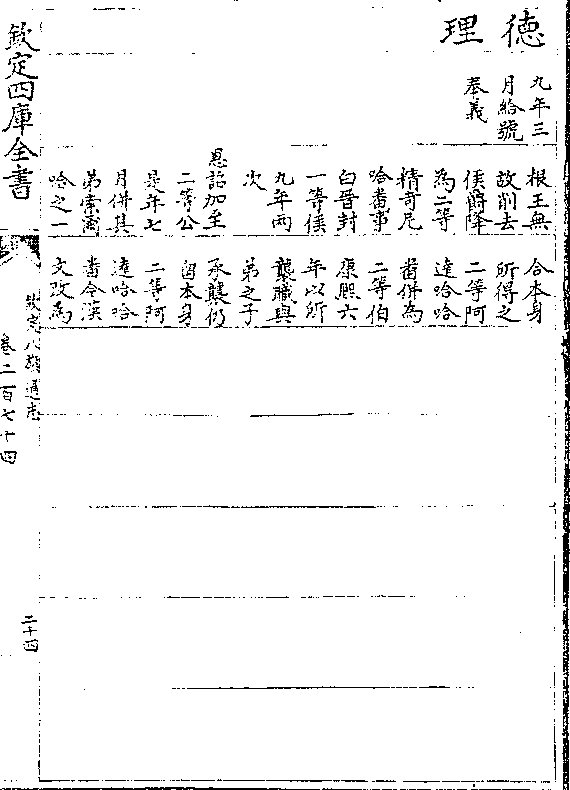 德
理
九年三
月給號
奉義
根王無
故削去
侯爵降
為二等
精奇尼
哈番事
白晉封
一等侯
九年兩
次
恩詔加至
二等公
是年七
月併其
弟索爾
哈之一
合本身
所得之
二等阿
達哈哈
番併為
二等伯
康熙六
年以所
襲職與
弟之子
承襲仍
留本身
二等阿
達哈哈
番今漢
文改為
欽定四庫全書
欽定八旗通志
卷二百七十四
二十四